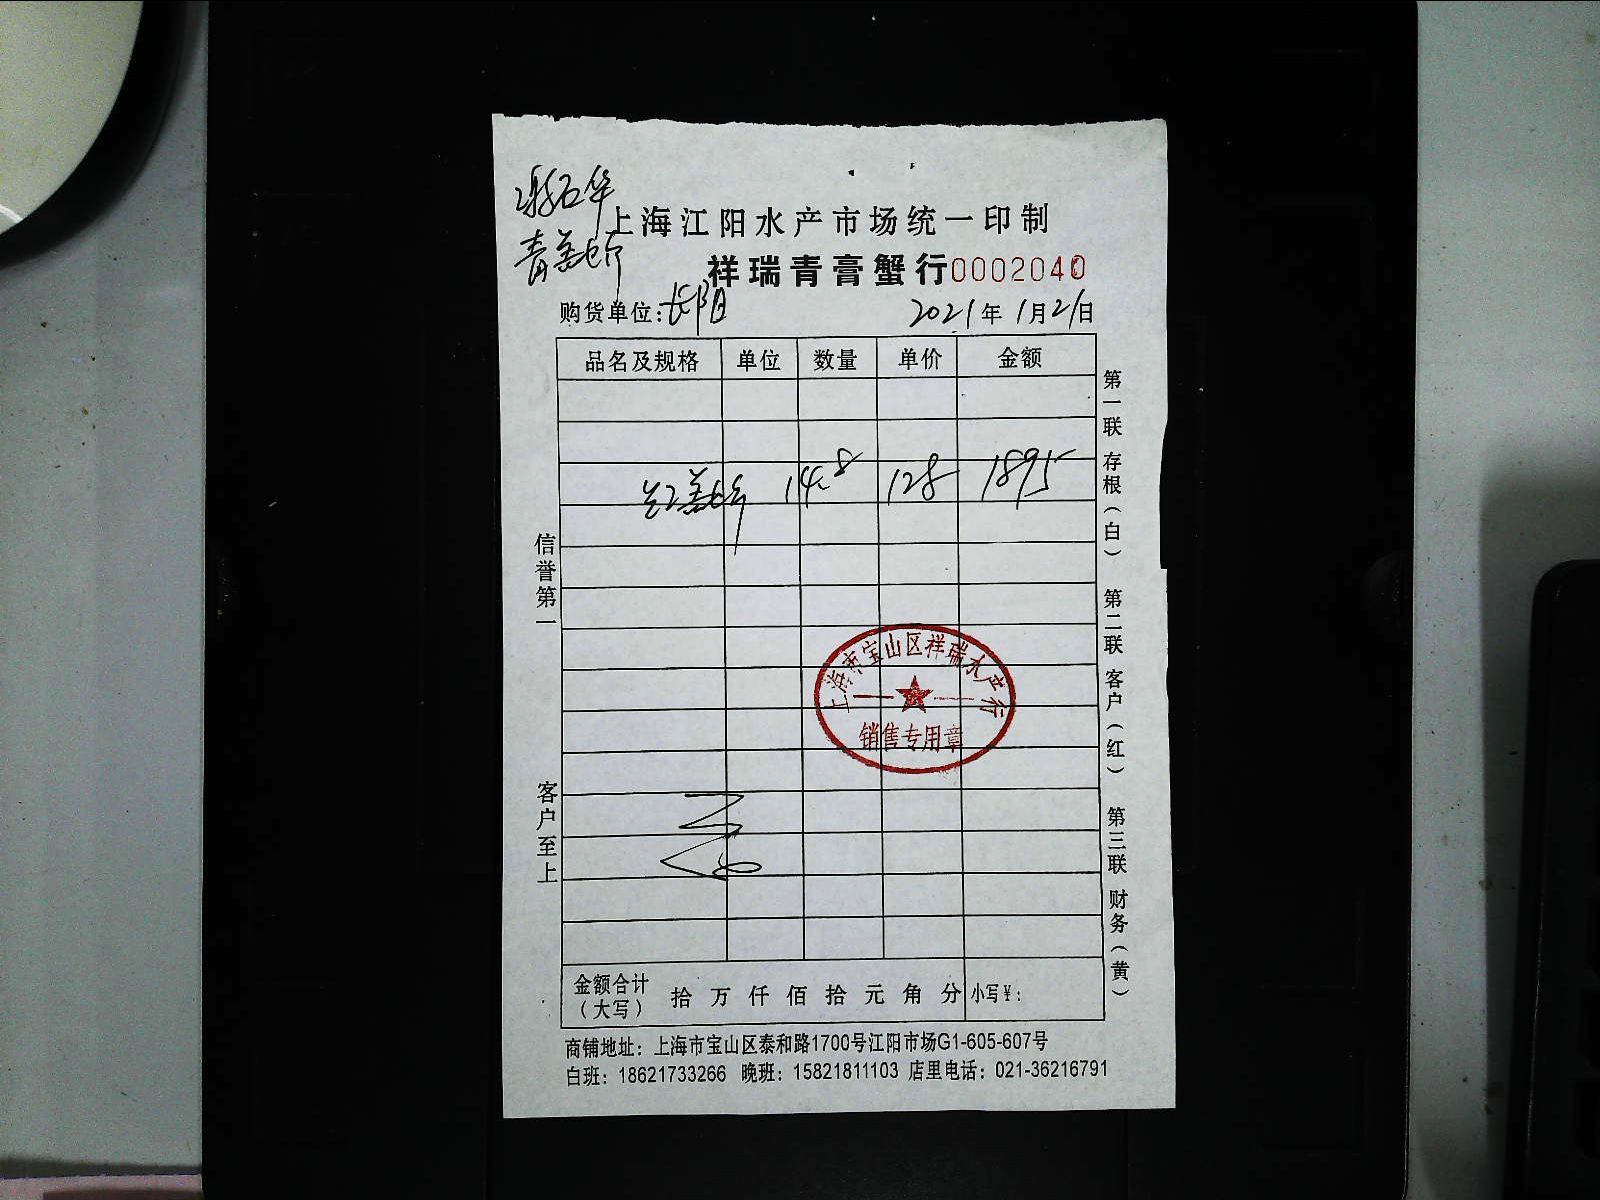 上海江阳水产市场统一印制
祥瑞青膏蟹行0002040
购货单位:长阳 2021年1月21日
品名及规格 单位 数量 单价 金额
14.8 128 1895
信誉第一
客户至上
第一联 存根(白) 第二联 客户(红) 第三联 财务(黄)
上海市宝山区祥瑞水产行
销售专用章
金额合计(大写) 拾万仟佰拾元角分 小写¥:
商铺地址: 上海市宝山区泰和路1700号江阳市场G1-605-607号
白班: 18621733266 晚班: 15821811103 店里电话: 021-36216791